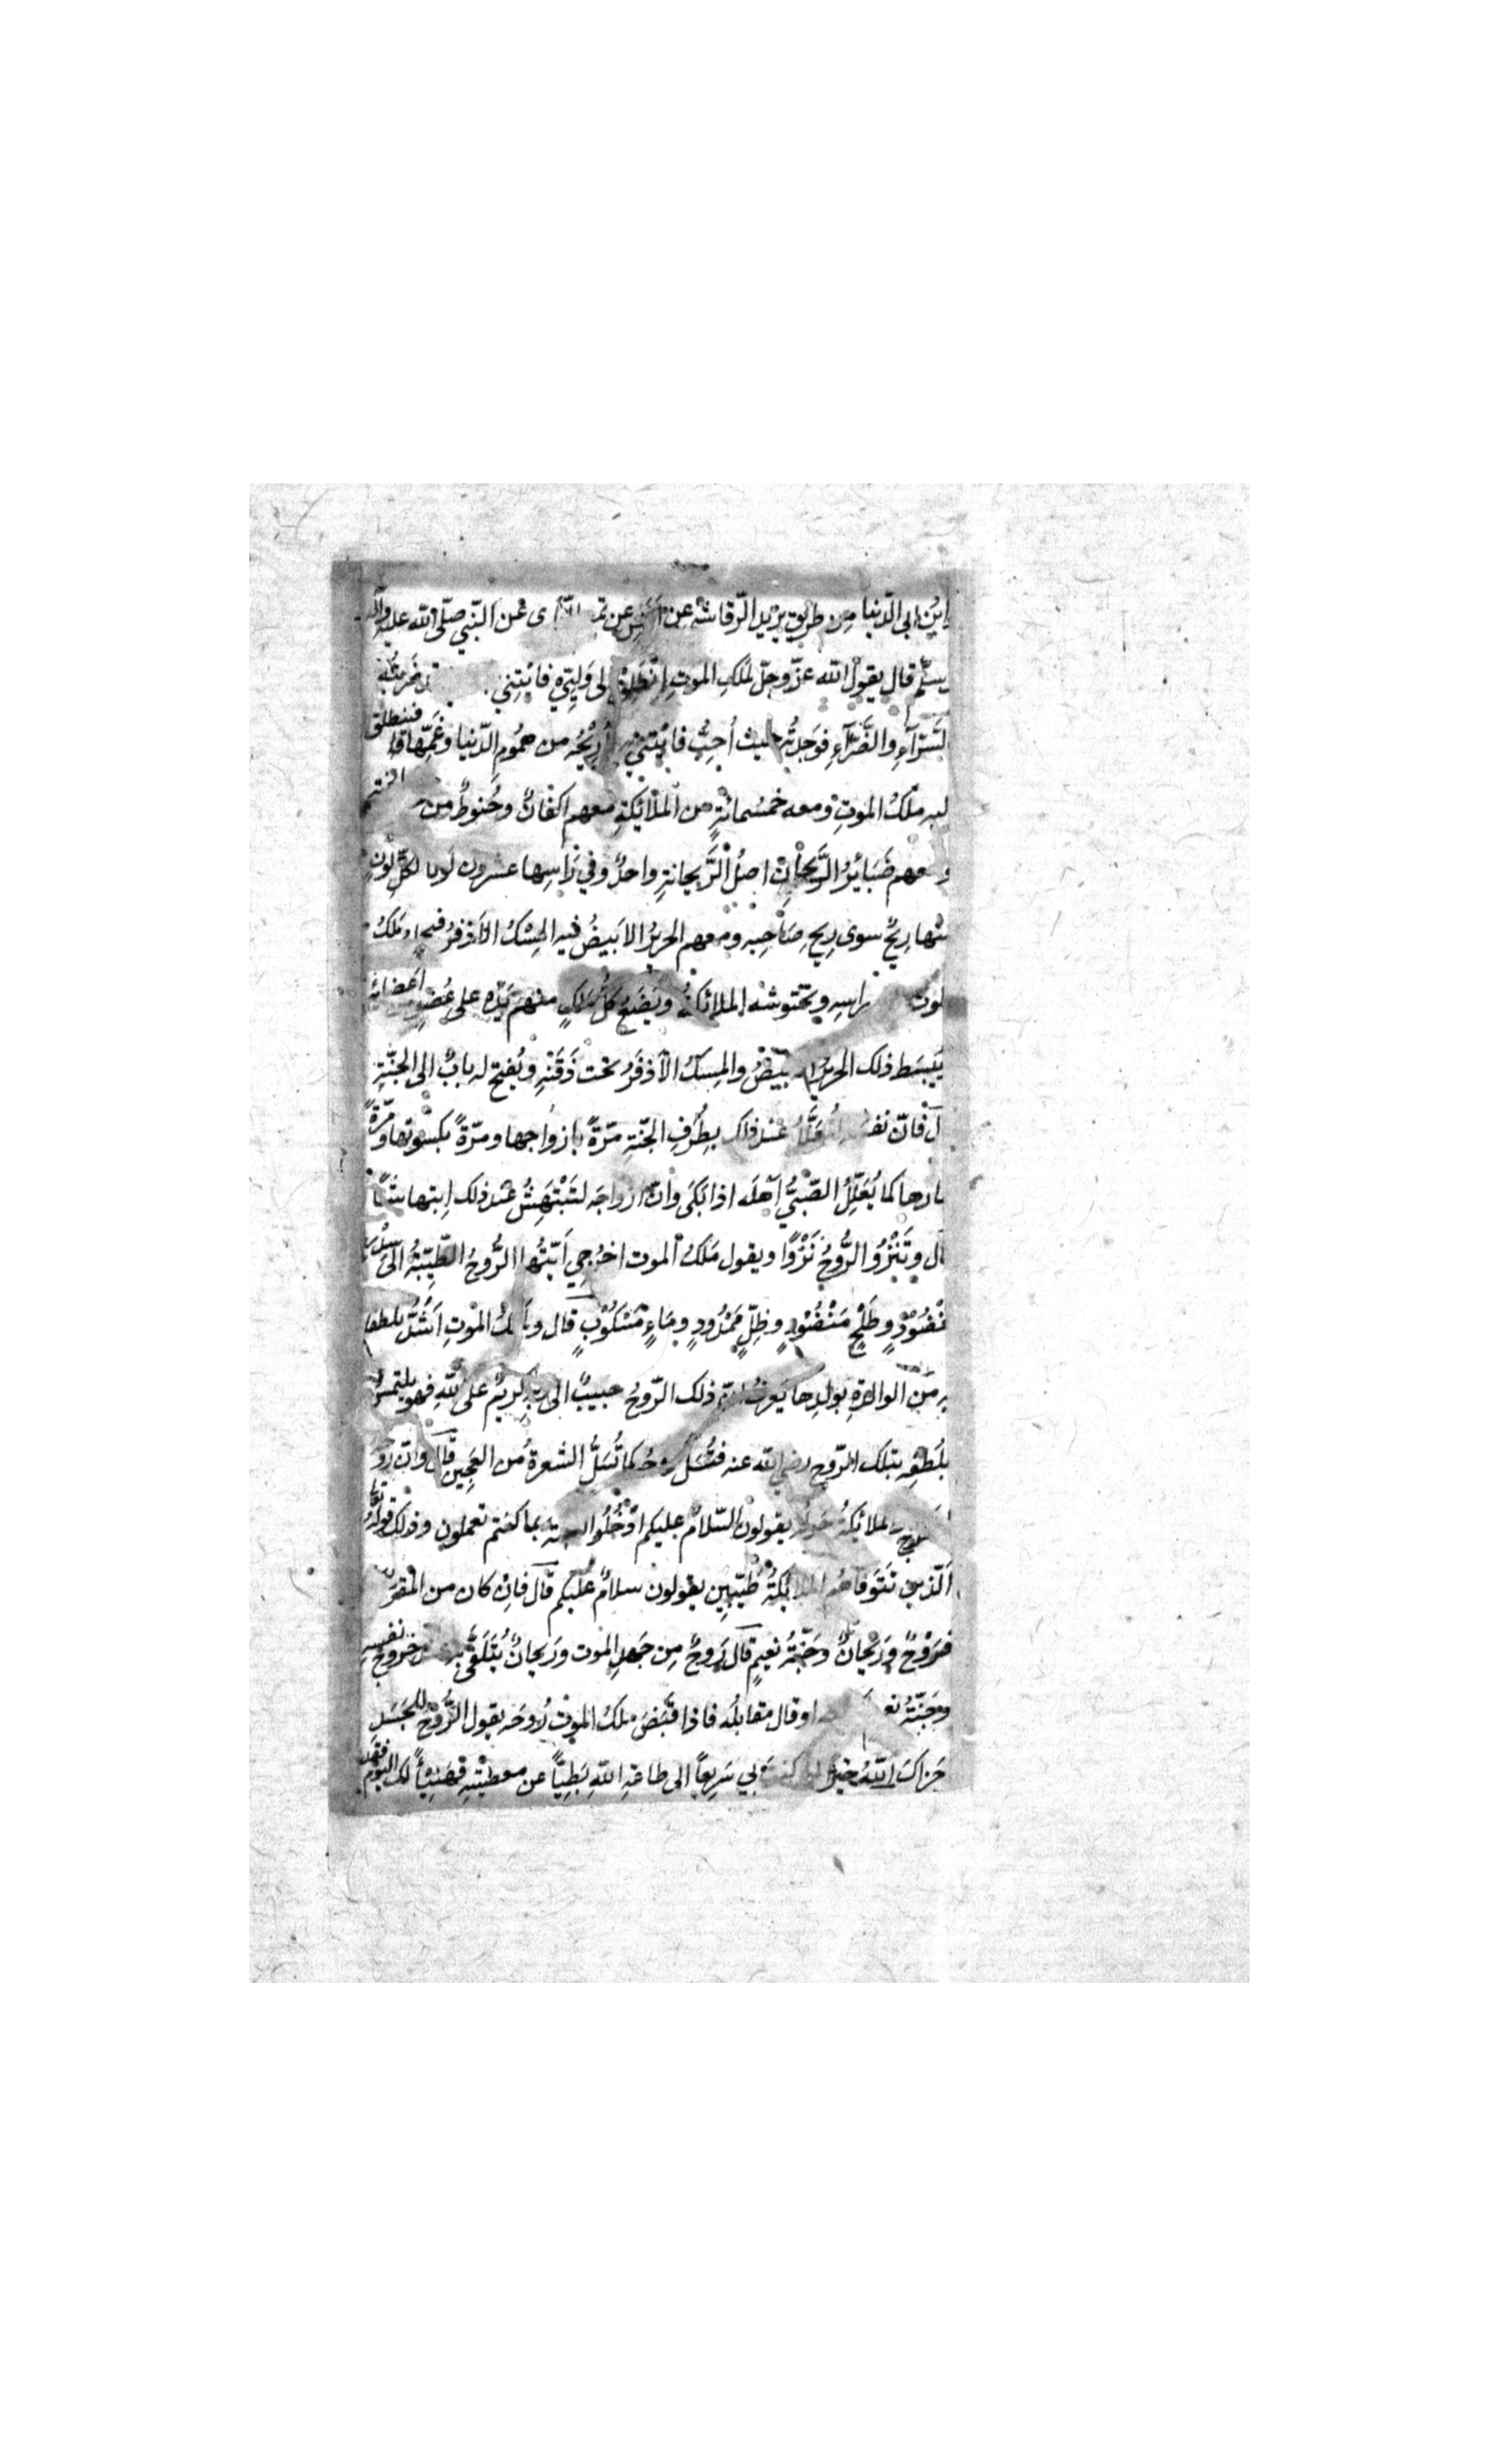 ابن ابى الدّنيا مِن طريق يزيد الرّقاشه عن اَنَسٍ عن تم الدّارى عن النّبي صلّى اللّه عليه واله
وسلّم قال يقولُ اللّه عزّ وجلّ لمَلَكِ الموتِ اِنْطَلِقْ الى وَلِيّي فاَئتِني فانى قد ضَرَبتُه
بالسَّرّآءِ والضَّرّآءِ فوَجَدتُه حيث اُحِبُّ فائْتِني به اُرِيْحُه من همُومِ الدّنيا وغَمِّها فينطلق
اليه مَلَكُ الموتِ ومعه خمسُمائةٍ من الملائكةِ معهم اكفانٌ وحُنوطٌ من
ومعهم ضَبَائِرُ الرَّيحانِ اصلُ الرَّيحانةِ واحدٌ وفي رَاسِها عشرون لونا لكلِّ لونٍ
منها رِيحٌ سوى رِيحِ صَاحِبِه ومعهم الحريرُ الابيضُ فيه المِسْكُ الاَذفرُ فيجلس مَلَكُ
الموت راسِه ويحتوشه الملائكةُ ويَضَعُ كلُّ مَلَكٍ منهم يَدَه على عُضوٍ اعضائه
ويَبسَط ذلك الحريرُ الابيضُ والمِسكُ الاَذفَرُ تحت ذَقَنِه ويُفتح له بابٌ الى الجنّةِ
قال فانّ نفسه لَتُعَلَّلُ عند ذلك بِطُرَفِ الجنّةِ مرّةً بازواجها ومرّةً بكسوتها ومرّةً
بثمارها كما يُعَلِّلُ الصّبيَّ اَهلُه اذا بَكَى وانّ ازواجَه لَتَبْتَهِشُ عند ذلك اِبتهاشًا
قال وتَنْزُو الرُّوحُ نَزْوًا ويقول مَلَكُ الموت اخرُجِي اَيّتُها الرُّوحُ الطّيِّبَةُ الى سدر
مخْضُوْدٍ وطَلْحٍ مَنْضُوْدٍ وظِلٍّ مَمْدُودٍ ومَاءٍ مَسْكُوْبٍ قال ومَلَكُ الموتِ اَشَدُّ تلطفا
به من الوالدةِ بولدِها يَعرِفُ انّ ذلك الرّوحُ حبيبٌ الى ربّه كريمٌ على اللّهِ فهو يلتمسُ
بلُطفِه بتلك الرّوحِ رضى اللّه عنه فتُسَلُّ روحُه كما تُسَلُّ الشعرةُ من العَجِينِ قال وانّ روحَه
لتخرج والملائكةُ حوله يقولون السّلامُ عليكم اُدْخُلُوا الجنة بما كنتم تعملون وذلك قولُه تعالى
اَلّذين تَتَوَفاهُم الملائكةُ طَيّبِين يقولون سلامٌ عليكم قال فاِنْ كان من المقرّبين
فرَوْحٌ ورَيحانٌ وجَنّةُ نعيمٍ قال رَوحٌ مِن جَهدِ الموت ورَيحانٌ يُتَلَقَّى به عند خروجِ نفسِه
وجَنّةُ نعيم امامه او قال مقابلُه فاذا قَبَضَ مَلَكُ الموتِ رُوحَه يقول الرُّوحُ للجَسَدِ
جَزاكَ اللّهُ خيرًا لقد كنتَ بي سَرِيعًا الى طاعةِ اللّهِ بَطِيئًا عن معصيتِه فهَنِيئًا لك اليومَ فقد